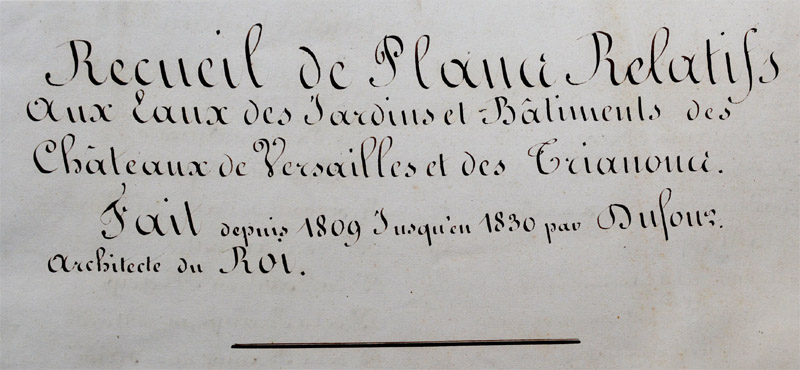 Recueil de Plans Relatifs
Aux Eaux des Jardins et Bâtiments des
Châteaux de Versailles et des Trianons.
Fait depuis 1809 Jusqu'en 1830 par Dufour.
Architecte du Roi.